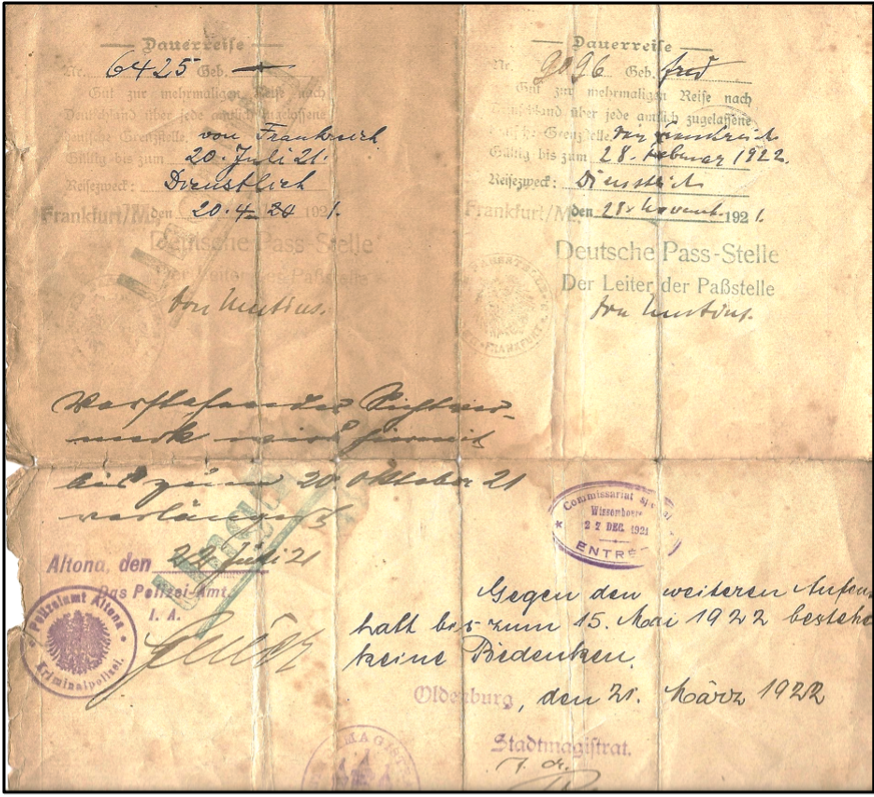 Dauerreise
Nr. 6425 Geb.
Gut zur mehrmaligen Reise nach
Deutschland über jede amtlich zugelassene
deutsche Grenzstelle von Frankreich
Gültig bis zum 20. Juli 21.
Reisezweck: Dienstlich
Frankfurt/M. den 20.4. 1921.
Deutsche Pass-Stelle
Der Leiter der Paßstelle
von Mutius.
Dauerreise
Nr. 9096 Geb. frei
Gut zur mehrmaligen Reise nach
Deutschland über jede amtlich zugelassene
deutsche Grenzstelle von Frankreich
Gültig bis zum 28. Februar 1922.
Reisezweck: Dienstlich
Frankfurt/M. den 28. Novemb. 1921.
Deutsche Pass-Stelle
Der Leiter der Paßstelle
von Mutius.
FRANKFURT
Vorstehender Sichtver-
merk wird hiermit
bis zum 20 Oktober 21
verlängert
Altona, den 22 Juli 21
Das Polizei-Amt.
I. A.
Polizeiamt Altona
Kriminalpolizei.
Commissariat
Wissembourg
27 DEC. 1921
ENTRÉE
Gegen den weiteren Aufent
halt bis zum 15. Mai 1922 bestehe
keine Bedenken.
Oldenburg, den 21. März 1922
Stadtmagistrat.
MAGIST